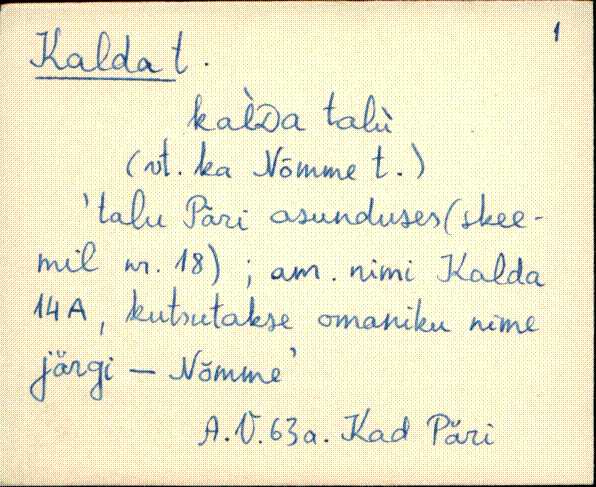 1
Kalda t.
kal̀Da talù
(vt. ka Nõmme t.)
'talu Päri asunduses (skee-
mil nr. 18) ; am. nimi Kalda
14A, kutsutakse omaniku nime
järgi — Nõmme'
A.V. 63a. Kad Päri